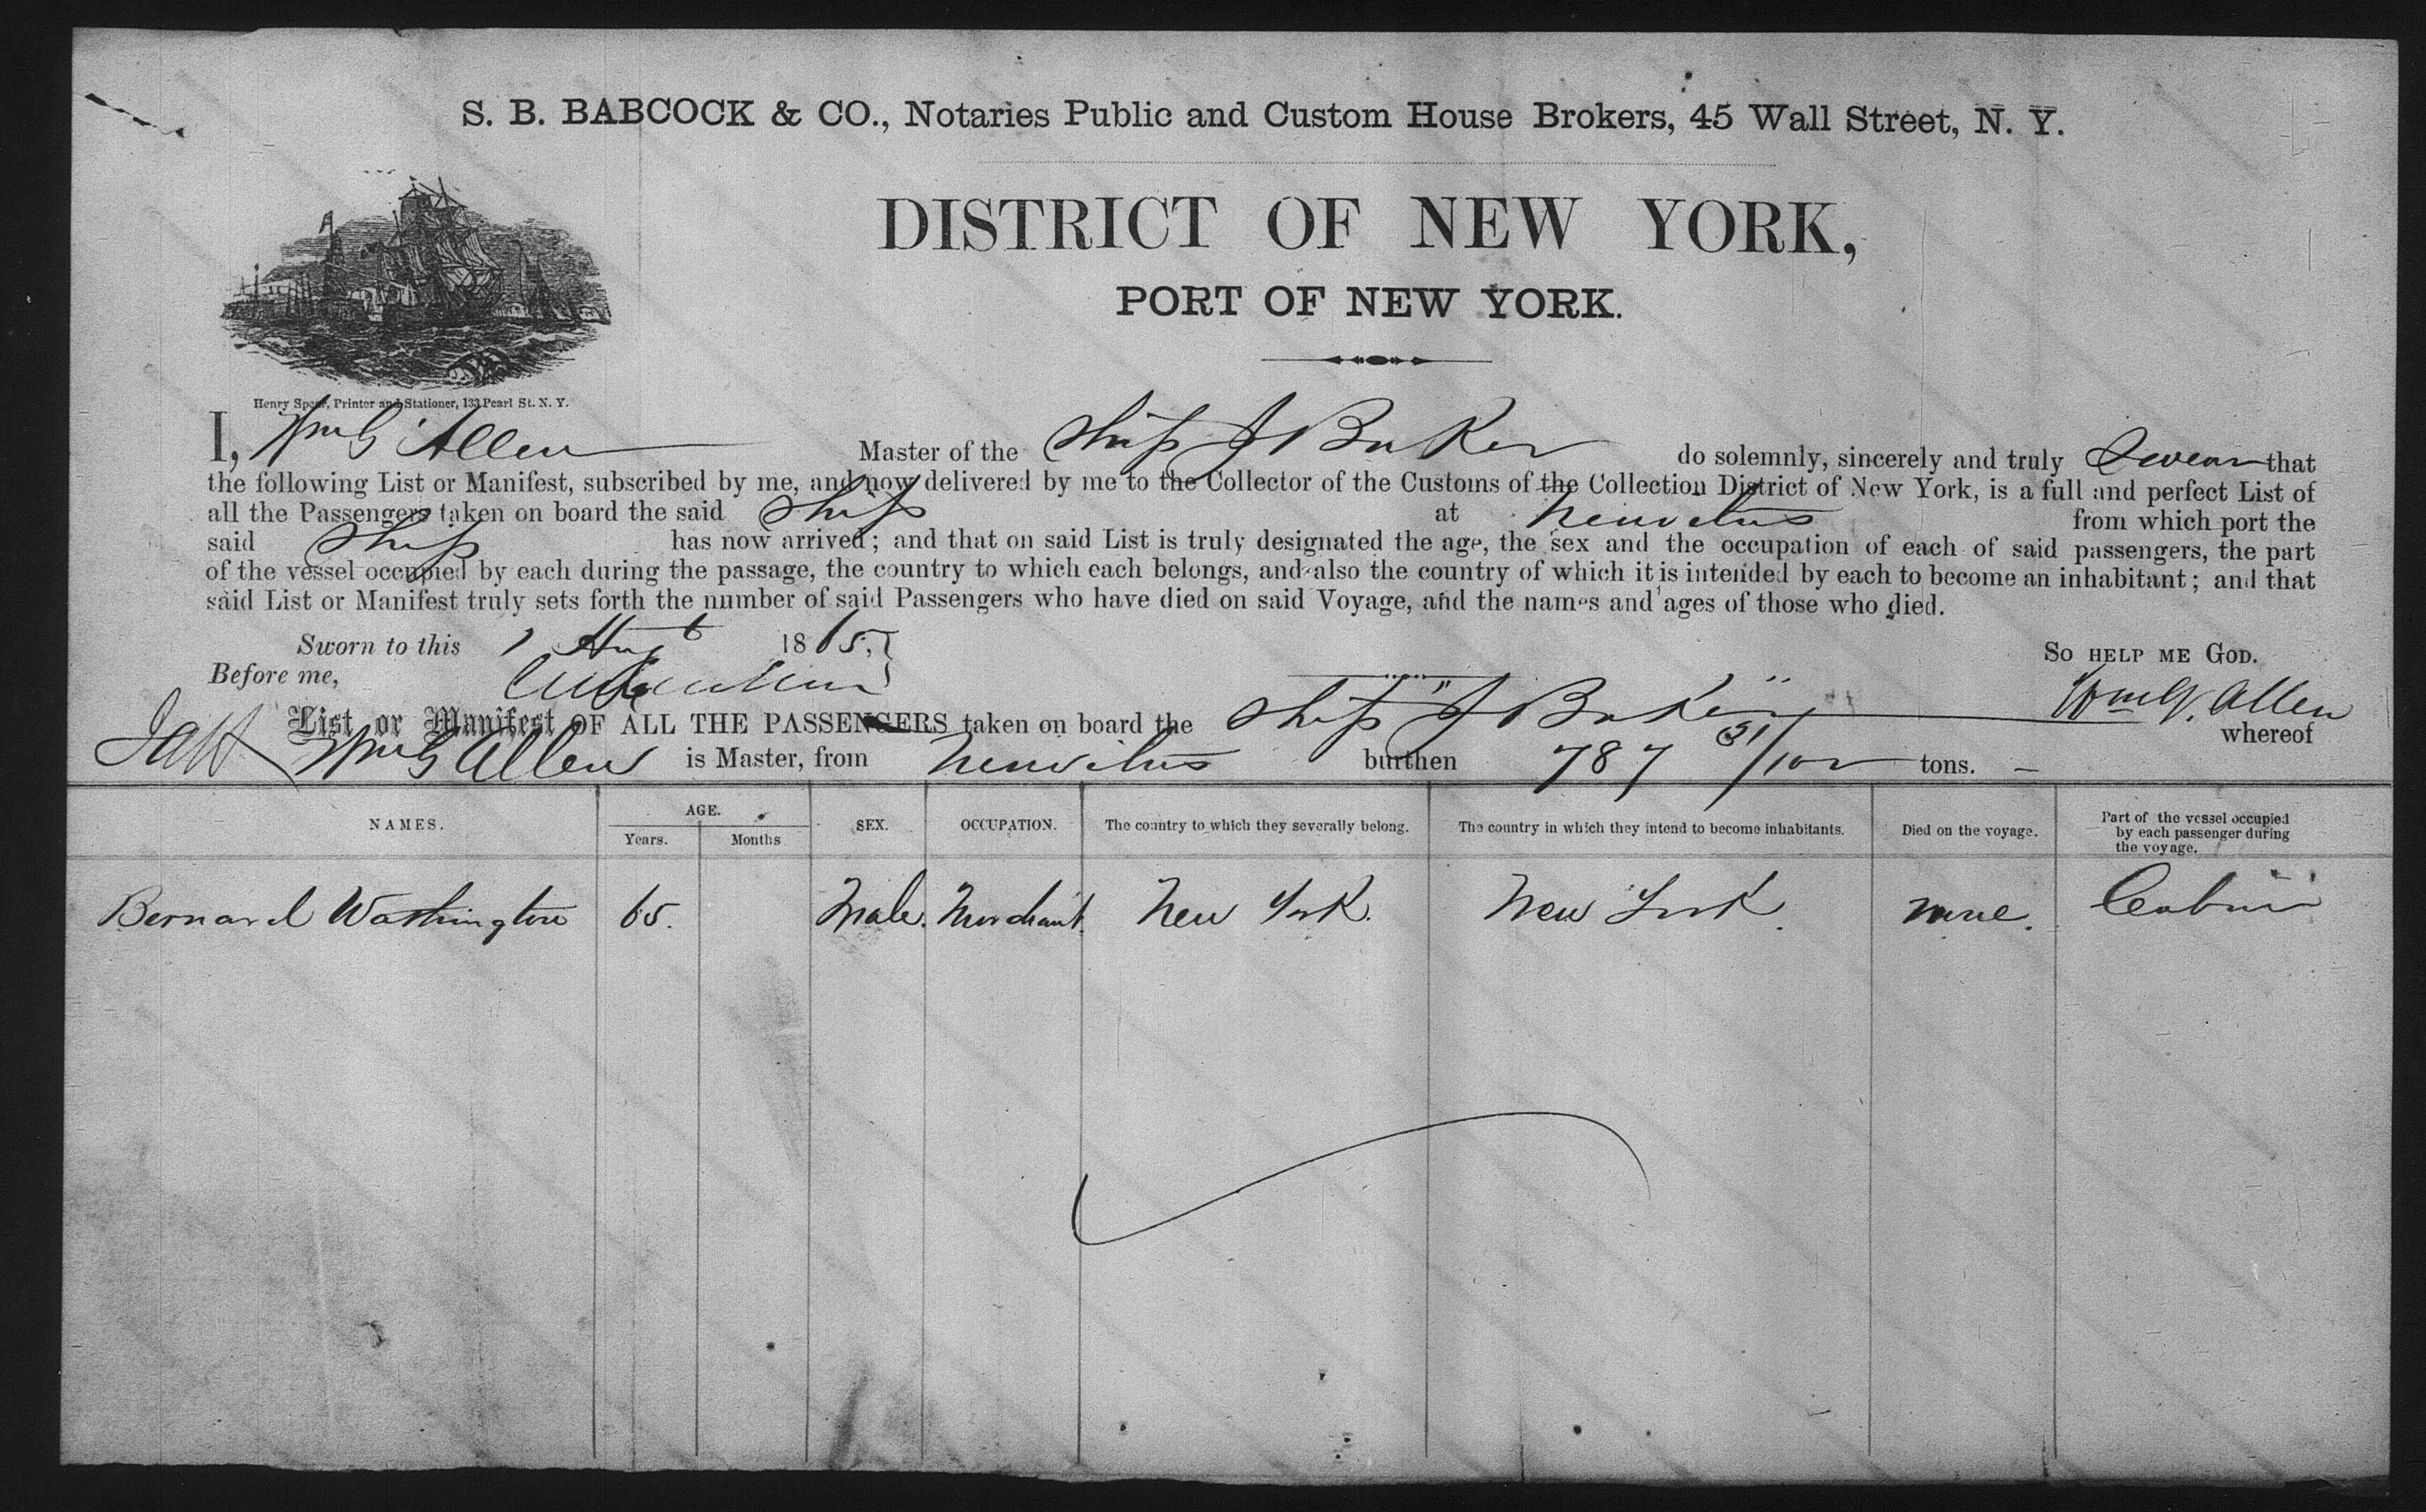 S. B. BABCOCK & CO., Notaries Public and Custom House Brokers, 45 Wall Street, N. Y.
DISTRICT OF NEW YORK,
PORT OF NEW YORK.
Henry Spear, Printer and Stationer, 133 Pearl St. N. Y.
I, Wm G Allen Master of the Ship J Baker do solemnly, sincerely and truly Swear that
the following List or Manifest, subscribed by me, and now delivered by me to the Collector of the Customs of the Collection District of New York, is a full and perfect List of
all the Passengers taken on board the said Ship at Neuvitus from which port the
said Ship has now arrived; and that on said List is truly designated the age, the sex and the occupation of each of said passengers, the part
of the vessel occupied by each during the passage, the country to which each belongs, and also the country of which it is intended by each to become an inhabitant; and that
said List or Manifest truly sets forth the number of said Passengers who have died on said Voyage, and the names and ages of those who died.
Sworn to this 1 Augt 1865, SO HELP ME GOD.
Before me, Wm G. Allen
List or Manifest OF ALL THE PASSENGERS taken on board the Ship "J Baker" whereof
Wm G Allen is Master, from Neuvitus burthen 787 31/100 tons.
NAMES. AGE. SEX. OCCUPATION. The country to which they severally belong. The country in which they intend to become inhabitants. Died on the voyage. Part of the vessel occupied by each passenger during the voyage.
Years. Months
Bernard Washington 65. Male. Merchant. New York. New York. none. Cabin